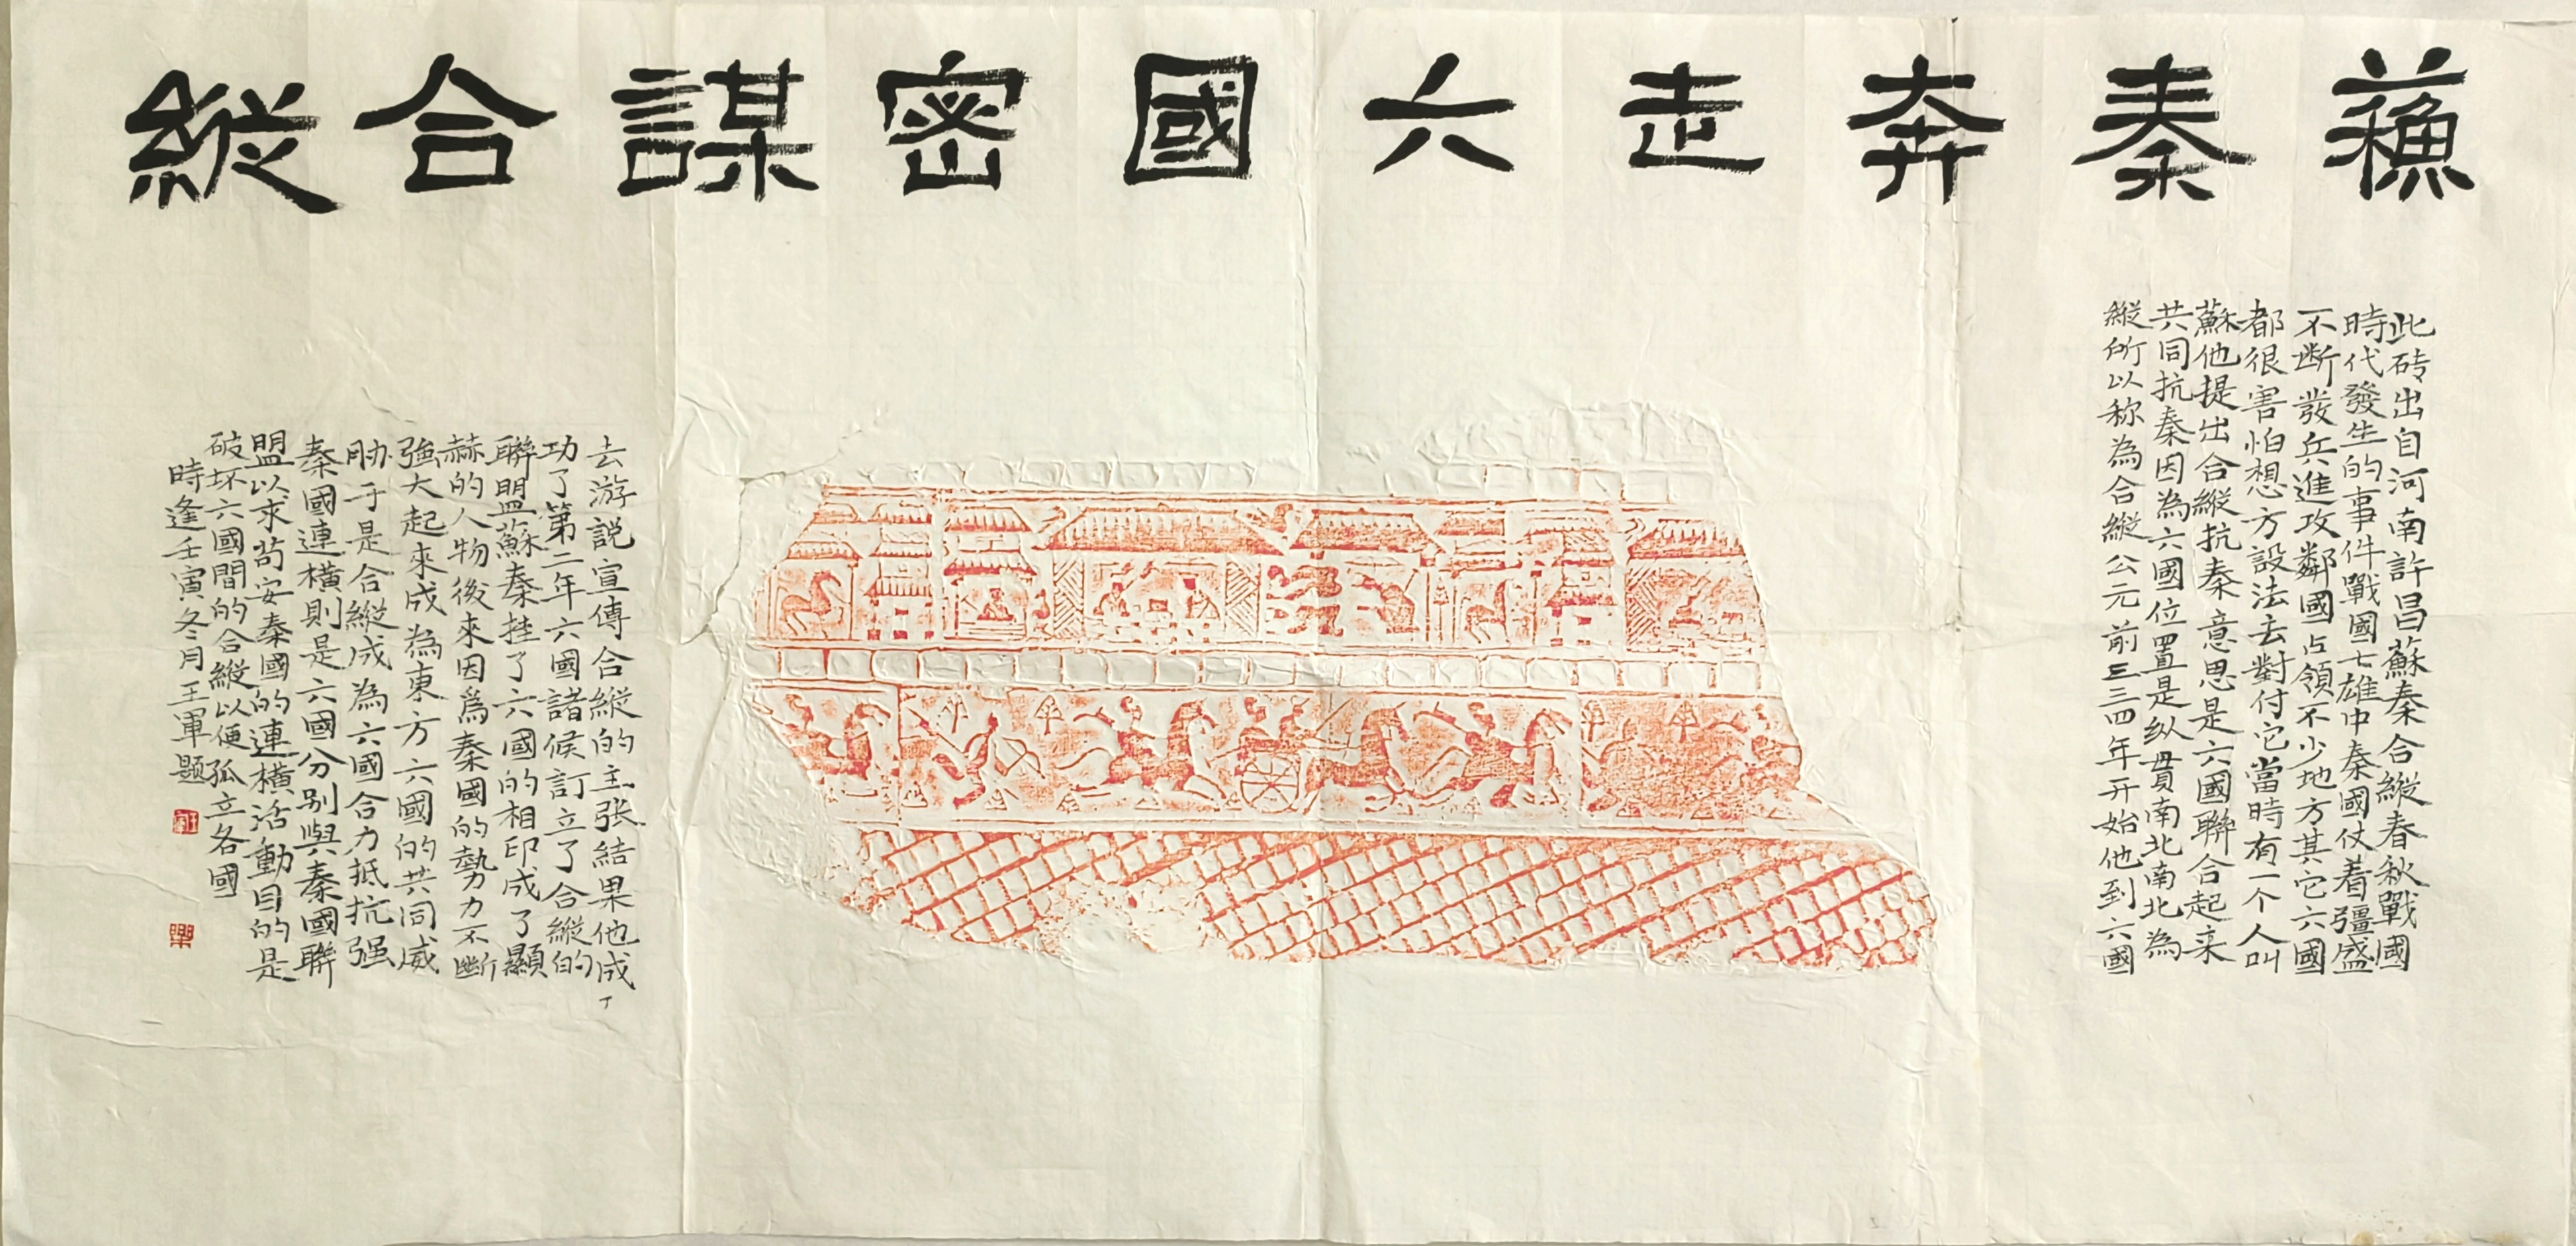 蘇秦奔走六國密謀合縱
此砖出自河南許昌蘇秦合縱春秋戰國
時代發生的事件戰國七雄中秦國仗着彊盛
不断發兵進攻鄰國占領不少地方其它六國
都很害怕想方設法去對付它當時有一个人叫
蘇他提出合縱抗秦意思是六國聯合起来
共同抗秦因為六國位置是纵貫南北南北為
縱所以称為合縱公元前三三四年开始他到六國
去游説宣傳合縱的主张結果他成了
功了第二年六國諸侯訂立了合縱的
聯盟蘇秦挂了六國的相印成了顯
赫的人物後來因爲秦國的勢力不斷
強大起來成為東方六國的共同威
胁于是合縱成為六國合力抵抗强
秦國連橫則是六國分别與秦國聯
盟以求苟安秦國的連橫活動目的是
破坏六國間的合縱以便孤立各國
時逢壬寅冬月王軍題